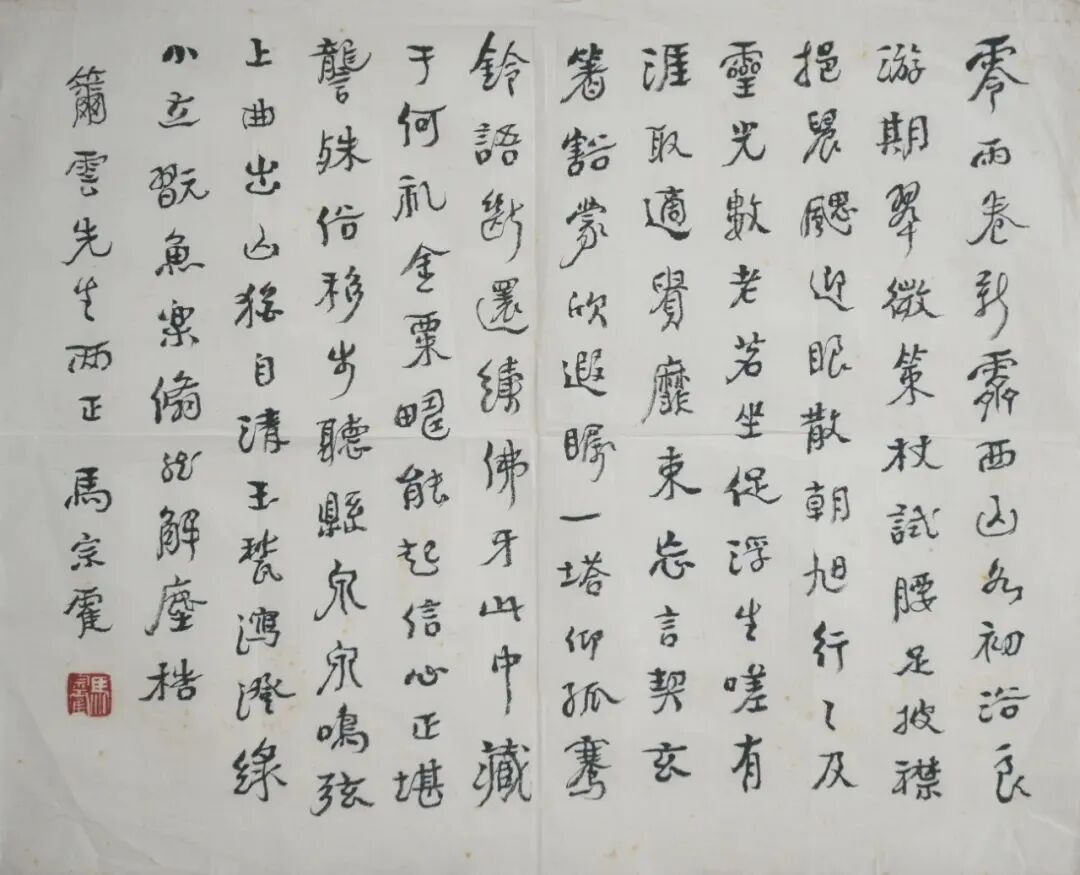 零雨卷新霽西山如初浴良
游期翠微策杖試腰足披襟
挹晨颸迎眼散朝旭行々及
靈光數老若坐促浮生嗟有
涯取適賢靡束忘言契玄
箸豁蒙欣遐矚一塔仰孤騫
鈴語斷還續佛牙此中藏
于何礼金粟疇能起信心正堪
讋殊俗移步聽懸泉泉鳴弦
上曲出山猶自清玉甃瀉澄綠
小立翫魚樂翛然解塵梏
籋雲先生兩正 馬宗霍